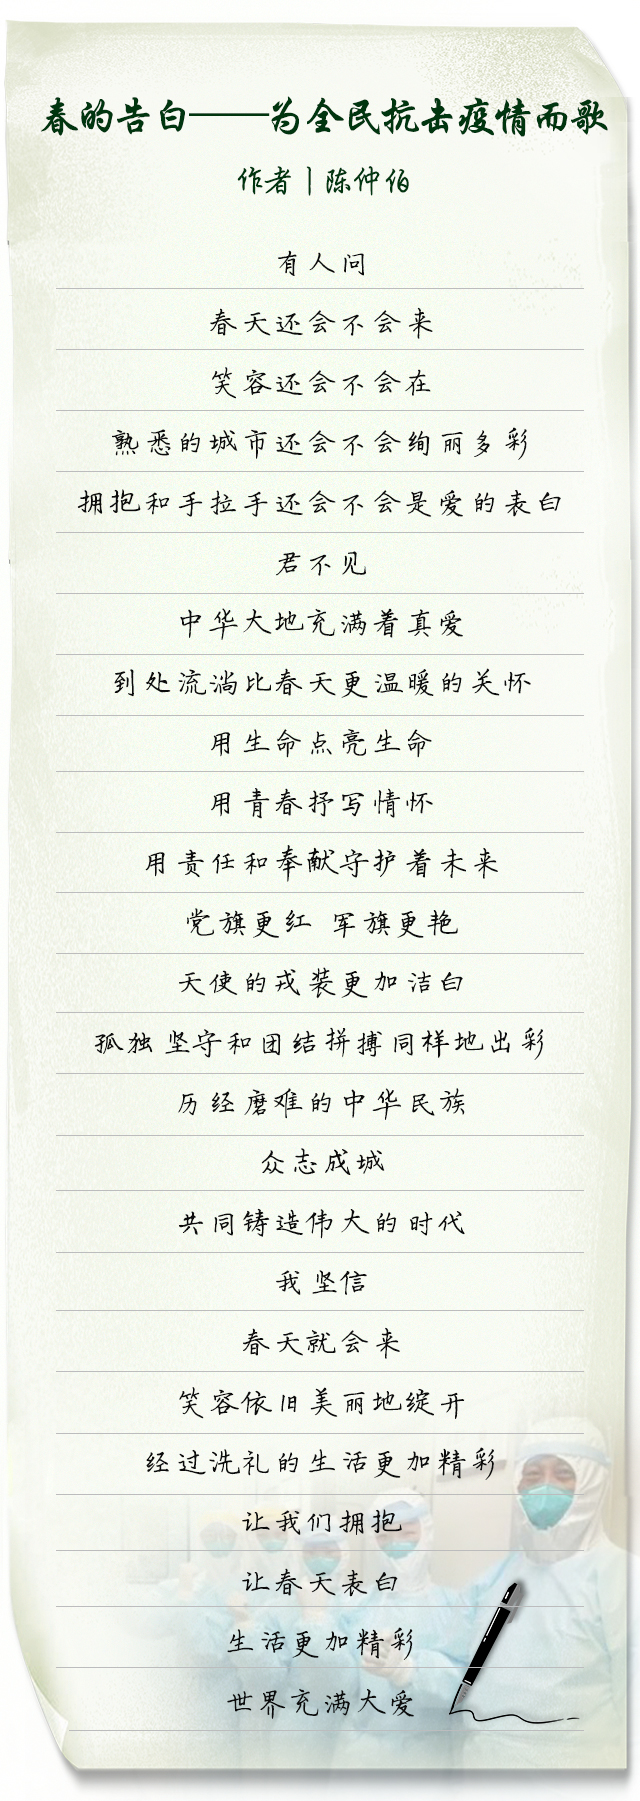 春的告白——为全民抗击疫情而歌
作者丨陈仲伯
有人问
春天还会不会来
笑容还会不会在
熟悉的城市还会不会绚丽多彩
拥抱和手拉手还会不会是爱的表白
君不见
中华大地充满着真爱
到处流淌比春天更温暖的关怀
用生命点亮生命
用青春抒写情怀
用责任和奉献守护着未来
党旗更红 军旗更艳
天使的戎装更加洁白
孤独坚守和团结拼搏同样地出彩
历经磨难的中华民族
众志成城
共同铸造伟大的时代
我坚信
春天就会来
笑容依旧美丽地绽开
经过洗礼的生活更加精彩
让我们拥抱
让春天表白
生活更加精彩
世界充满大爱